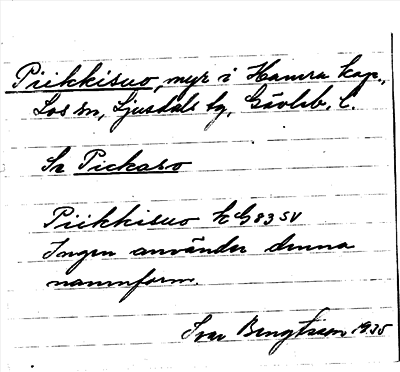 Piikkisuo, myr i Hamra kap.,
Los sn, Ljusdals tg, Gävleb. l.
Se Pickaso
Piikkisuo k G 83 SV
Ingen använder denna
namnform.
Bengtsson 1935